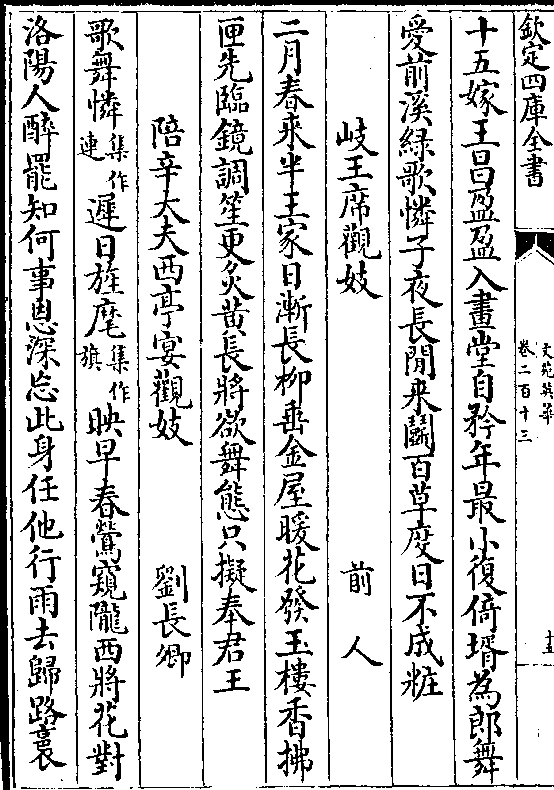 欽定四庫全書
文苑英華
卷二百十三
十五
十五嫁王昌盈盈入畫堂自矜年最小復倚壻為郎舞
愛前溪綠歌憐子夜長閒来鬭百草度日不成粧
岐王席觀妓 前人
二月春来半王家日漸長柳垂金屋暖花發玉樓香拂
匣先臨鏡調笙更炙黄長將欲舞態只擬奉君王
陪辛大夫西亭宴觀妓 劉長卿
歌舞憐集作連遲日旌麾集作旗映早春鶯窺隴西將花對
洛陽人醉罷知何事恩深忘此身任他行雨去歸路裛